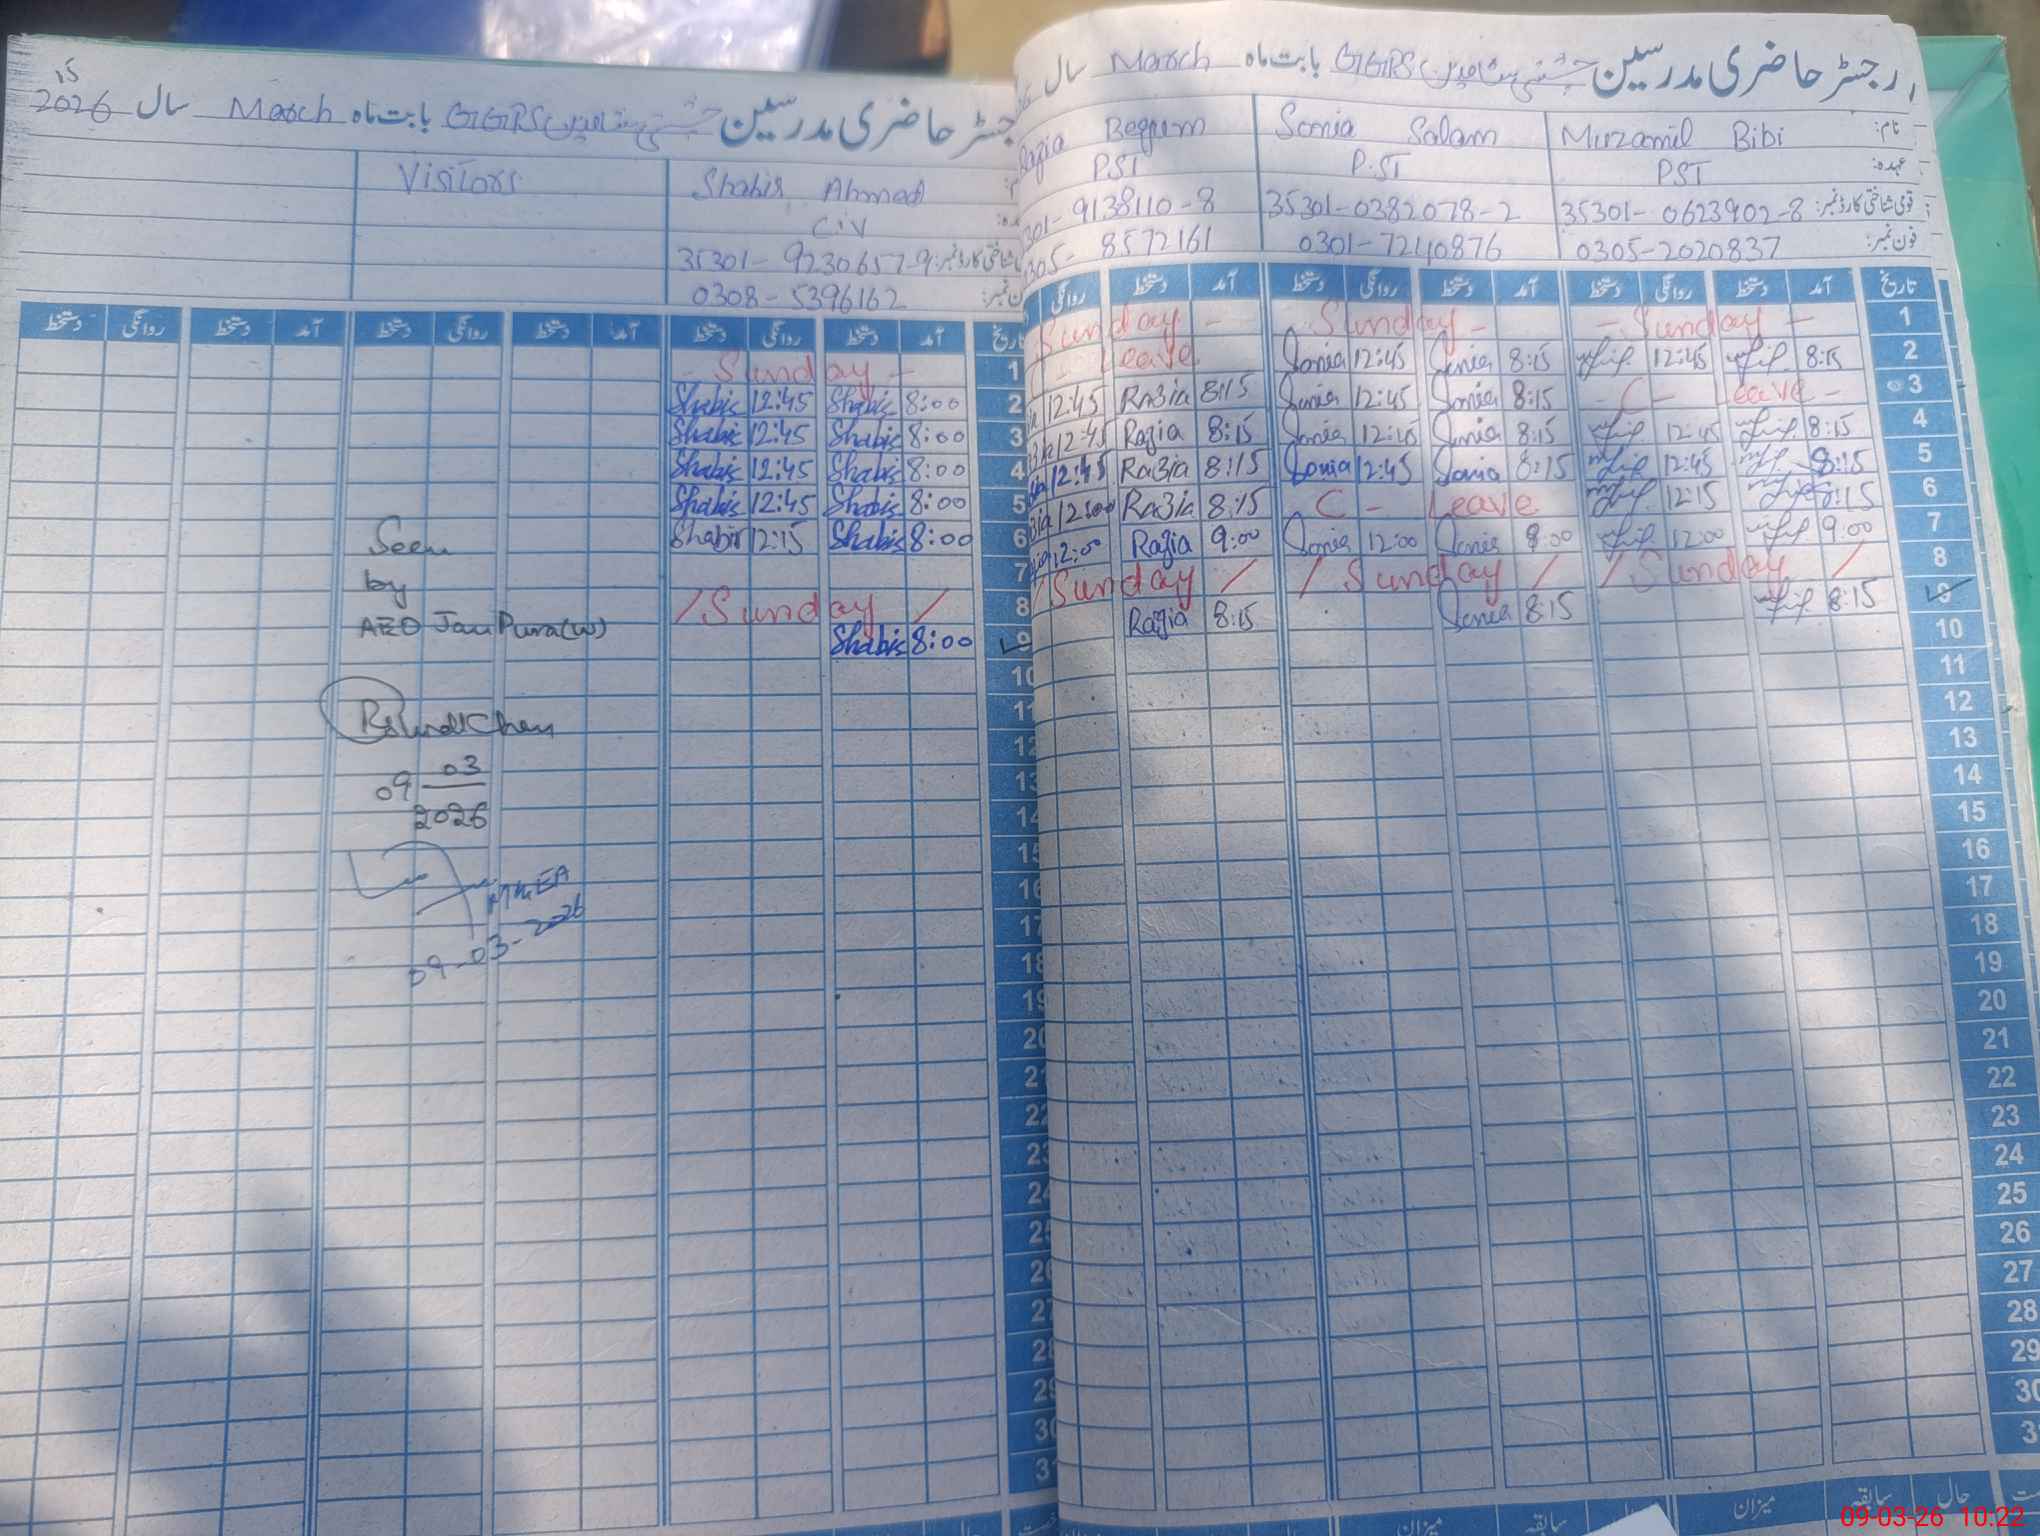 رجسٹر حاضری مدرسین GGPS بابت ماہ March سال
نام: Muzamil Bibi Sonia Salam Razia Begum
عہدہ: PST P.ST PST
قومی شناختی کارڈ نمبر: 35301-0623902-8 35301-0382078-2 301-9138110-8
فون نمبر: 0305-2020837 0301-7240876 305-8572161
تاریخ آمد دستخط روانگی دستخط آمد دستخط روانگی دستخط آمد دستخط روانگی
1 - Sunday - - Sunday - Sunday -
2 8:15 12:45 8:15 Sonia 12:45 Sonia Leave
3 - C - Leave - 8:15 Sonia 12:45 Sonia 8:15 Razia 12:45
4 8:15 12:45 8:15 Sonia 12:45 Sonia 8:15 Razia 12:45
5 8:15 12:45 8:15 Sonia 12:45 Sonia 8:15 Razia 12:45
6 8:15 12:15 C - Leave 8:15 Razia
7 9:00 12:00 Sonia 12:00 Sonia 9:00 Razia 12:00
8 / Sunday / / Sunday / / Sunday /
9 8:15 8:15 Sonia 8:15 Razia
10
11
12
13
14
15
16
17
18
19
20
21
22
23
24
25
26
27
28
29
30
3
حال سابقہ میزان سابقہ میزان
15
رجسٹر حاضری مدرسین GGPS بابت ماہ March سال 2026
Shabir Ahmad Visitors
C.iv
شناختی کارڈ نمبر: 35301-9230657-9
0308-5396162
تاریخ آمد دستخط روانگی دستخط آمد دستخط روانگی دستخط آمد دستخط روانگی دستخط
1 - Sunday -
2 8:00 Shabir 12:45 Shabir
3 8:00 Shabir 12:45 Shabir
4 8:00 Shabir 12:45 Shabir
5 8:00 Shabir 12:45 Shabir
6 8:00 Shabir 12:15 Shabir
7
8 / Sunday /
9 8:00 Shabir
10
11
12
13
14
15
16
17
18
19
20
21
22
23
24
25
26
27
28
29
30
31
Seen
by
AEO
09-03-2026
MEA
09-03-2026
09-03-26 10:22